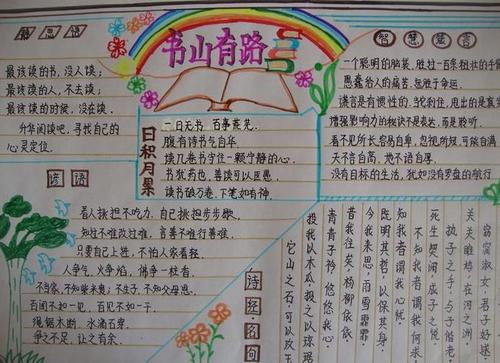 书山有路
最该读的书，没人读；
最该读的人，不去读；
最该读的时候，没在读。
升华阅读吧，寻找自己的
心灵定位.
智慧箴言
一个聪明的脑袋，胜过一百条粗壮的手
愚蠢给人的痛苦，胜于命运.
谎言是有惯性的，刹住，甩出的是真
增强影响力的秘诀不是，而是聆听.
看不见所长容易自卑，忽视所短，可能自满
天不言自高，地不语自厚.
没有目标的生活，犹如没有罗盘的航行
日积月累
一日无书，百事荒芜.
腹有诗书气自华.
读几卷书守住一颗宁静的心.
书犹药也，善读可以医愚.
读书破万卷，下笔如有神.
谚语
看人挑担不吃力，自己挑担步步歇.
知过不难改过难，言善不难行善难.
只要自己上进，不怕人家看轻.
人争气，火争焰，佛争一炷香.
不当家，不知柴米贵；不生子，不知父母恩.
百闻不如一见，百见不如一干.
绳锯木断，水滴石穿.
争之不足，让之有余.
诗经·名句
窈窕淑女，君子好逑
关关雎鸠，在河之洲
执子之手，与子偕老
死生契阔，与子成说
不知我者谓我何求
知我者谓我心忧
既明其哲，以保其身
今我来思，雨雪霏霏
昔我往矣，杨柳依依
青青子衿，悠悠我心
投我以木瓜，报之以琼琚
它山之石，可以攻玉